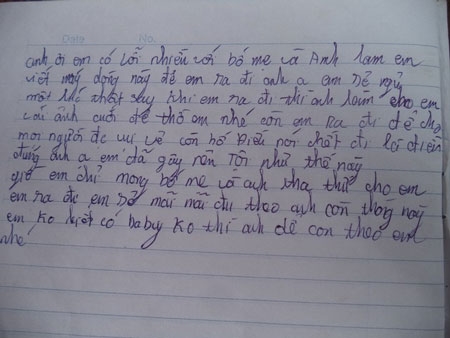 Date No.
anh ơi em có lỗi nhiều với bố mẹ và Anh lắm em
viết mấy dòng này để em ra đi anh ạ em sẽ ngủ
một giấc thật say khi em ra đi thì anh làm cho em
cái ảnh cưới để thờ em nhé còn em ra đi để cho
mọi người đc vui vẻ còn bố Điều nói chất đi lại điên
đúng anh ạ em đã gây nên Tôi như thế này
giờ em chỉ mong bố mẹ và anh tha thứ cho em
em ra đi em sẽ mãi mãi đi theo anh còn tháng này
em ko biết có baby ko thì anh để con theo em
nhé